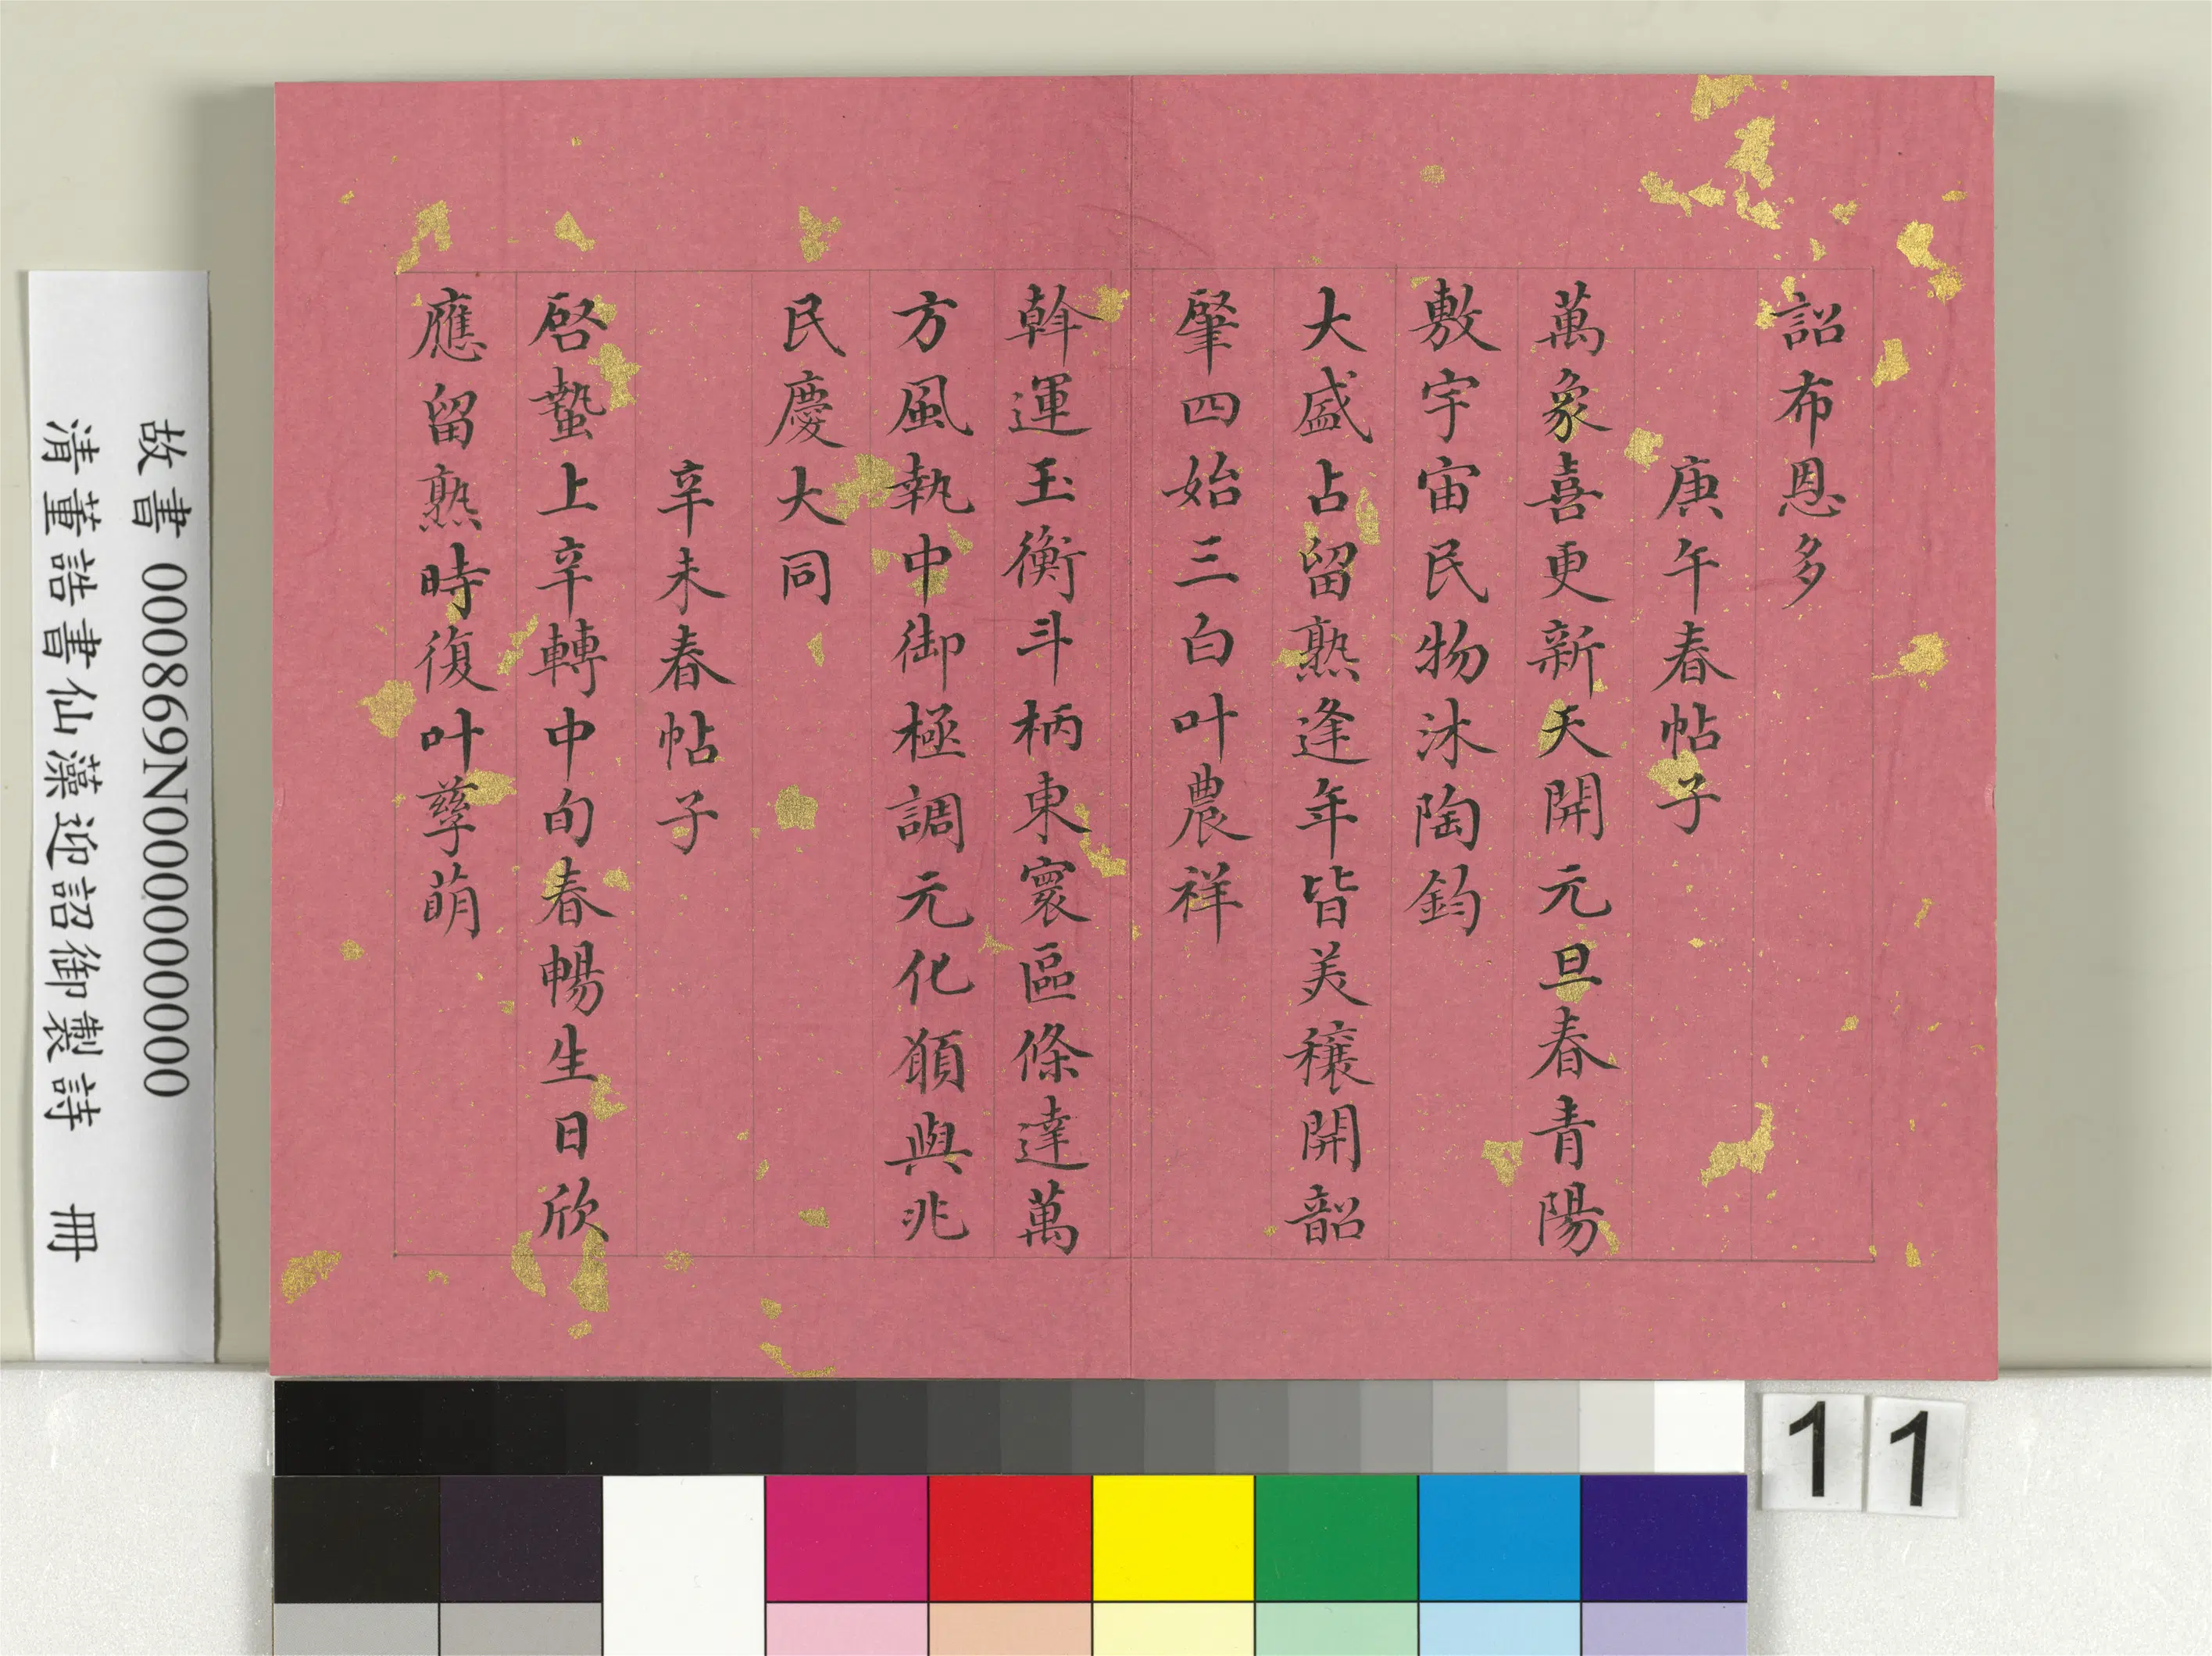 詔布恩多
庚午春帖子
萬象喜更新天開元旦春青陽
敷宇宙民物沐陶鈞
大盛占留熟逢年皆美穰開韶
肇四始三白叶農祥
斡運玉衡斗柄東寰區條達萬
方風執中御極調元化願與兆
民慶大同
辛未春帖子
啓蟄上辛轉中旬春暢生日欣
應留熟時復叶孳萌
故書 000869N000000000
清董誥書仙藻迎詔御製詩 冊
11